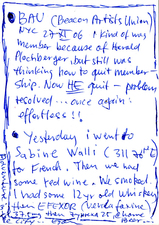 BAU (Beacon Artists Union
NYC 27 XI 06 I kind of was
member because of Herald
Plochberger, but still was
thinking how to quit member-
ship. Now HE quit – problem
resolved ... once again:
effortless!!
Yesterday i went to
Sabine Walli (311 78th St
for French. Then we had
some red wine. We smoked.
I had some 12yr old whiskey
then EFEXOR (Venlafaxine)
37.5mg then 2 @ home